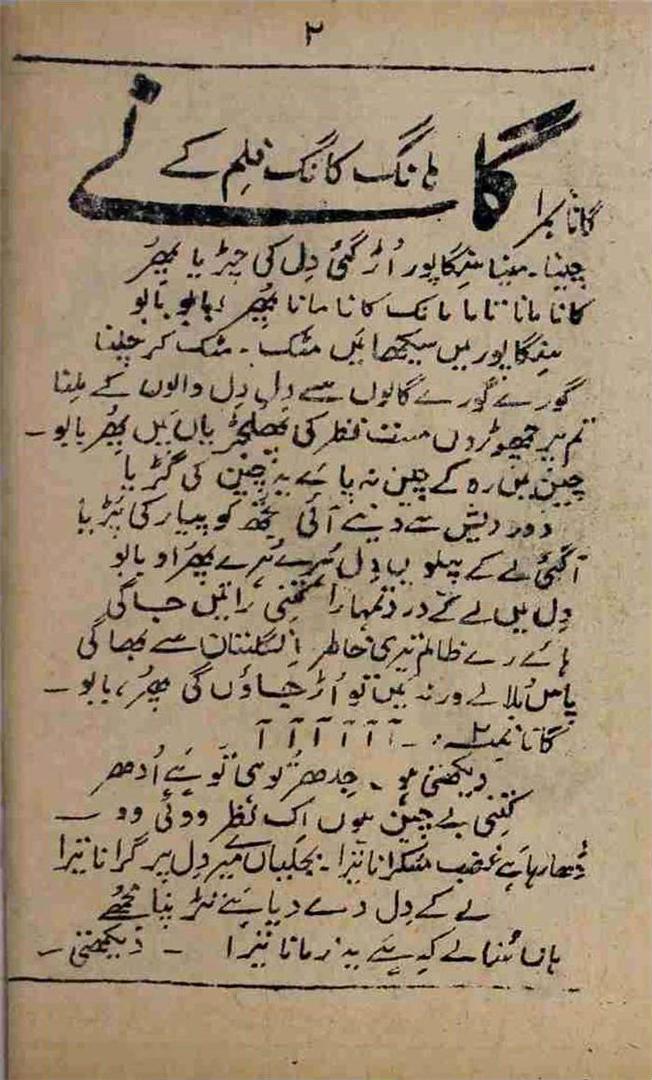 ۲
گانے
ہانگ کانگ فلم کے
گانا نمبر ۱
چینا۔ مینا سنگاپور اُڑ گئی دِل کی چڑیا پھُر
کانا مانا تاما مانک کانا مانا پھُر، بابو بابو
سنگاپور میں سیکھا میں مٹک۔ مٹک کر چلنا
گورے گورے گالوں سے دِل دِل والوں کے ملنا
تم پر چھوڑوں مست نظر کی پھُلجھڑیاں میں پھُر بابو۔
چین میں رہ کے چین نہ پائے یہ چین کی گُڑیا
دور دیش سے دینے آئی تجھ کو پیار کی پُڑیا
آگئی لے کے پہلو میں دِل ہُرے ہُرے پھُر او بابو
دِل میں لے کے درد تمہارا کتنی راتیں جاگی
ہائے رے ظالم تیری خاطر انگلستان سے بھاگی
پاس بُلا لے ورنہ میں تو اُڑ جاؤں گی پھُر، بابو۔
گانا نمبر ۲:۔ آ آ آ آ آ آ
دیکھتی ہو۔ جِدھر تو ہی تو ہے اُدھر
کتنی بے چین ہوں اِک نظر ووئی وو۔
ڈھا رہا ہے غضب مسکرانا تیرا۔ بجلیاں میرے دِل پر گرانا تیرا
لے کے دِل دے دیا ہے تڑپنا مجھے
ہاں سُنا لے کہ ہے یہ زمانا تیرا ۔ دیکھتی۔